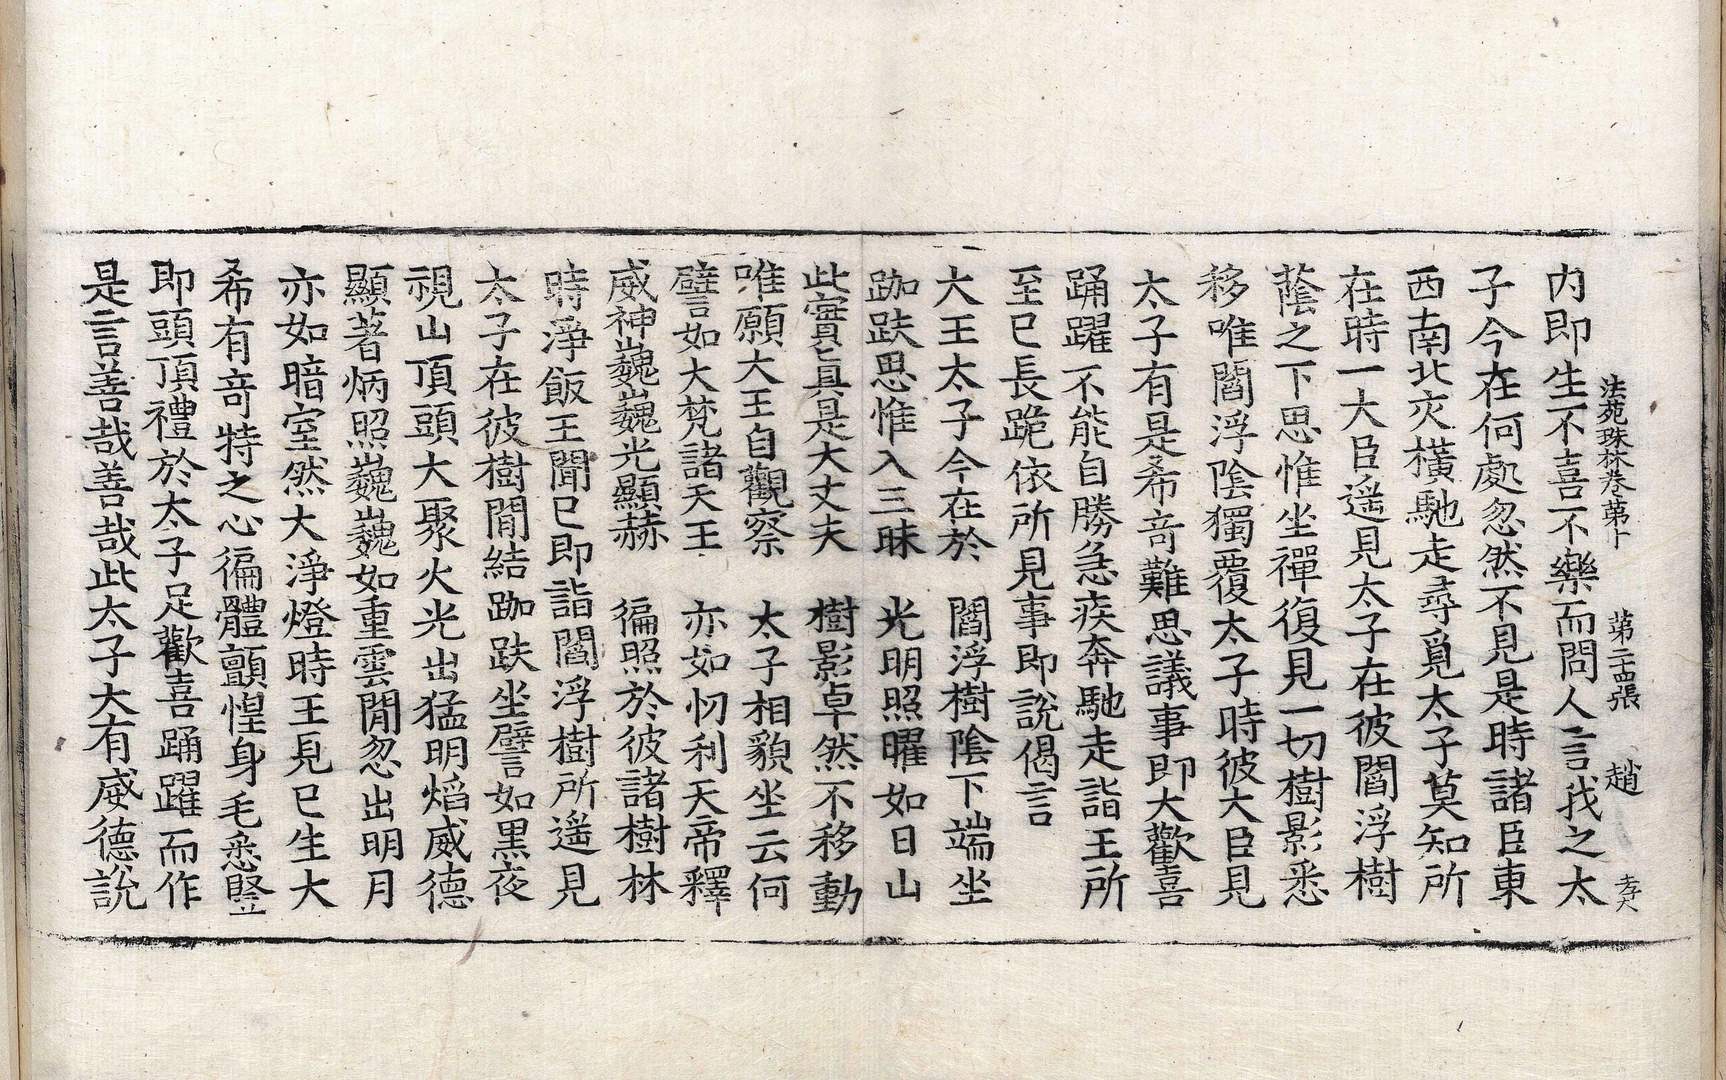 法苑珠林卷第十　第二十四張　趙　孝
内即生不喜不樂而問人言我之太
子今在何處忽然不見是時諸臣東
西南北交橫馳走尋覓太子莫知所
在時一大臣遥見太子在彼閻浮樹
蔭之下思惟坐禪復見一切樹影悉
移唯閻浮陰獨覆太子時彼大臣見
太子有是希竒難思議事即大歡喜
踊躍不能自勝急疾奔馳走詣王所
至已長跪依所見事即說偈言
大王太子今在於　閻浮樹陰下端坐
跏趺思惟入三昧　光明照曜如日山
此實真是大丈夫　樹影卓然不移動
唯願大王自觀察　太子相貌坐云何
譬如大梵諸天王　亦如忉利天帝釋
威神巍巍光顯赫　徧照於彼諸樹林
時淨飯王聞已即詣閻浮樹所遥見
太子在彼樹閒結跏趺坐譬如黑夜
視山頂頭大聚火光出猛明焰威德
顯著炳照巍巍如重雲閒忽出明月
亦如暗室然大淨燈時王見已生大
希有竒特之心徧體顫惶身毛悉竪
即頭頂禮於太子足歡喜踊躍而作
是言善哉善哉此太子大有威德說